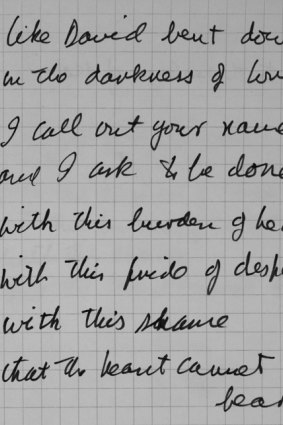 like David bent dow
in the darkness of
I call out your name
and I ask to be done
with this burden of
with this pride of desp
with this shame
that the heart cannot
bear